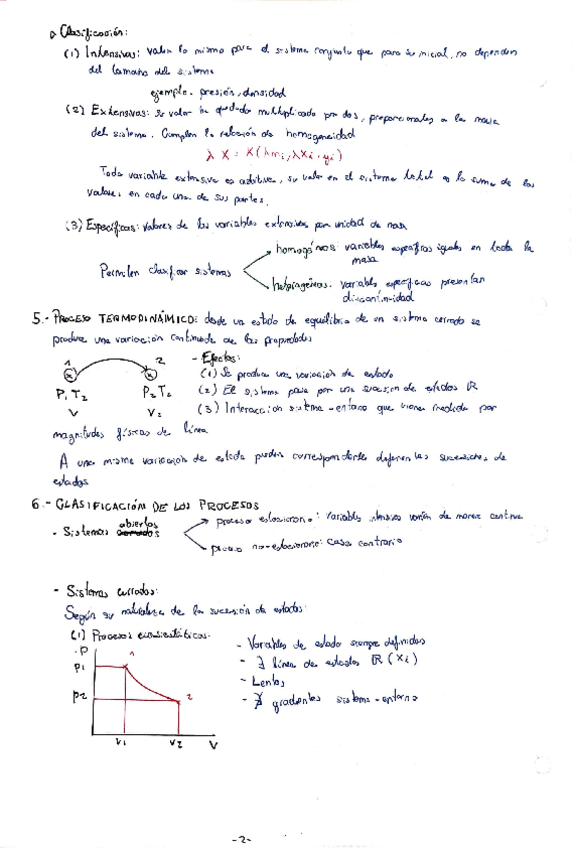 Clasificación:
(1) Intensivas: valen lo mismo para el sistema conjunto que para su inicial, no dependen
del tamaño del sistema
ejemplo. presión, densidad
(2) Extensivas: su valor ha quedado multiplicado por dos, proporcionales a la masa
del sistema. Cumplen la relación de homogeneidad
λ X = X(λmi, λXi, yi)
Toda variable extensiva es aditiva, su valor en el sistema total es la suma de los
valores en cada una de sus partes.
(3) Específicas: valores de las variables extensivas por unidad de masa
Permiten clasificar sistemas
homogéneos: variables específicas iguales en toda la
masa
heterogéneos. variables específicas presentan
discontinuidad
5.- PROCESO TERMODINÁMICO: desde un estado de equilibrio de un sistema cerrado se
produce una variación continuada de las propiedades
1 2
P1 T2 P2 T2
V V2
- Efectos:
(1) Se produce una variación de estado
(2) El sistema pasa por una sucesión de estados R
(3) Interacción sistema-entorno que viene medida por
magnitudes físicas de línea
A una misma variación de estado pueden corresponderle diferentes sucesiones de
estados
6.- CLASIFICACIÓN DE LOS PROCESOS
- Sistemas abiertos
proceso estacionario: variables intensivas varían de manera continua
proceso no-estacionario: caso contrario
- Sistemas cerrados:
Según su naturaleza de la sucesión de estados:
(1) Procesos cuasiestáticos.
P
P1
P2
1
2
V1 V2 V
- Variables de estado siempre definidas
- ∃ línea de estados R (xi)
- Lentos
- ∄ gradientes sistema-entorno
-2-